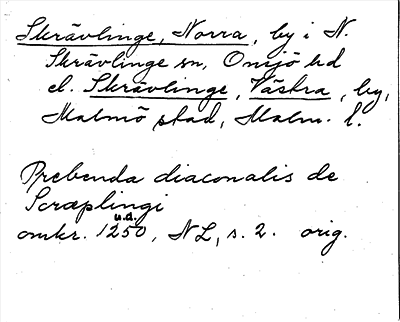 Skrävlinge, Norra, by i N.
Skrävlinge sn, Onsjö hd
el. Skrävlinge, Västra, by,
Malmö stad, Malm. l.
Prebenda diaconalis de
Scræplingi
u.a.
omkr. 1250, NL, s. 2. orig.